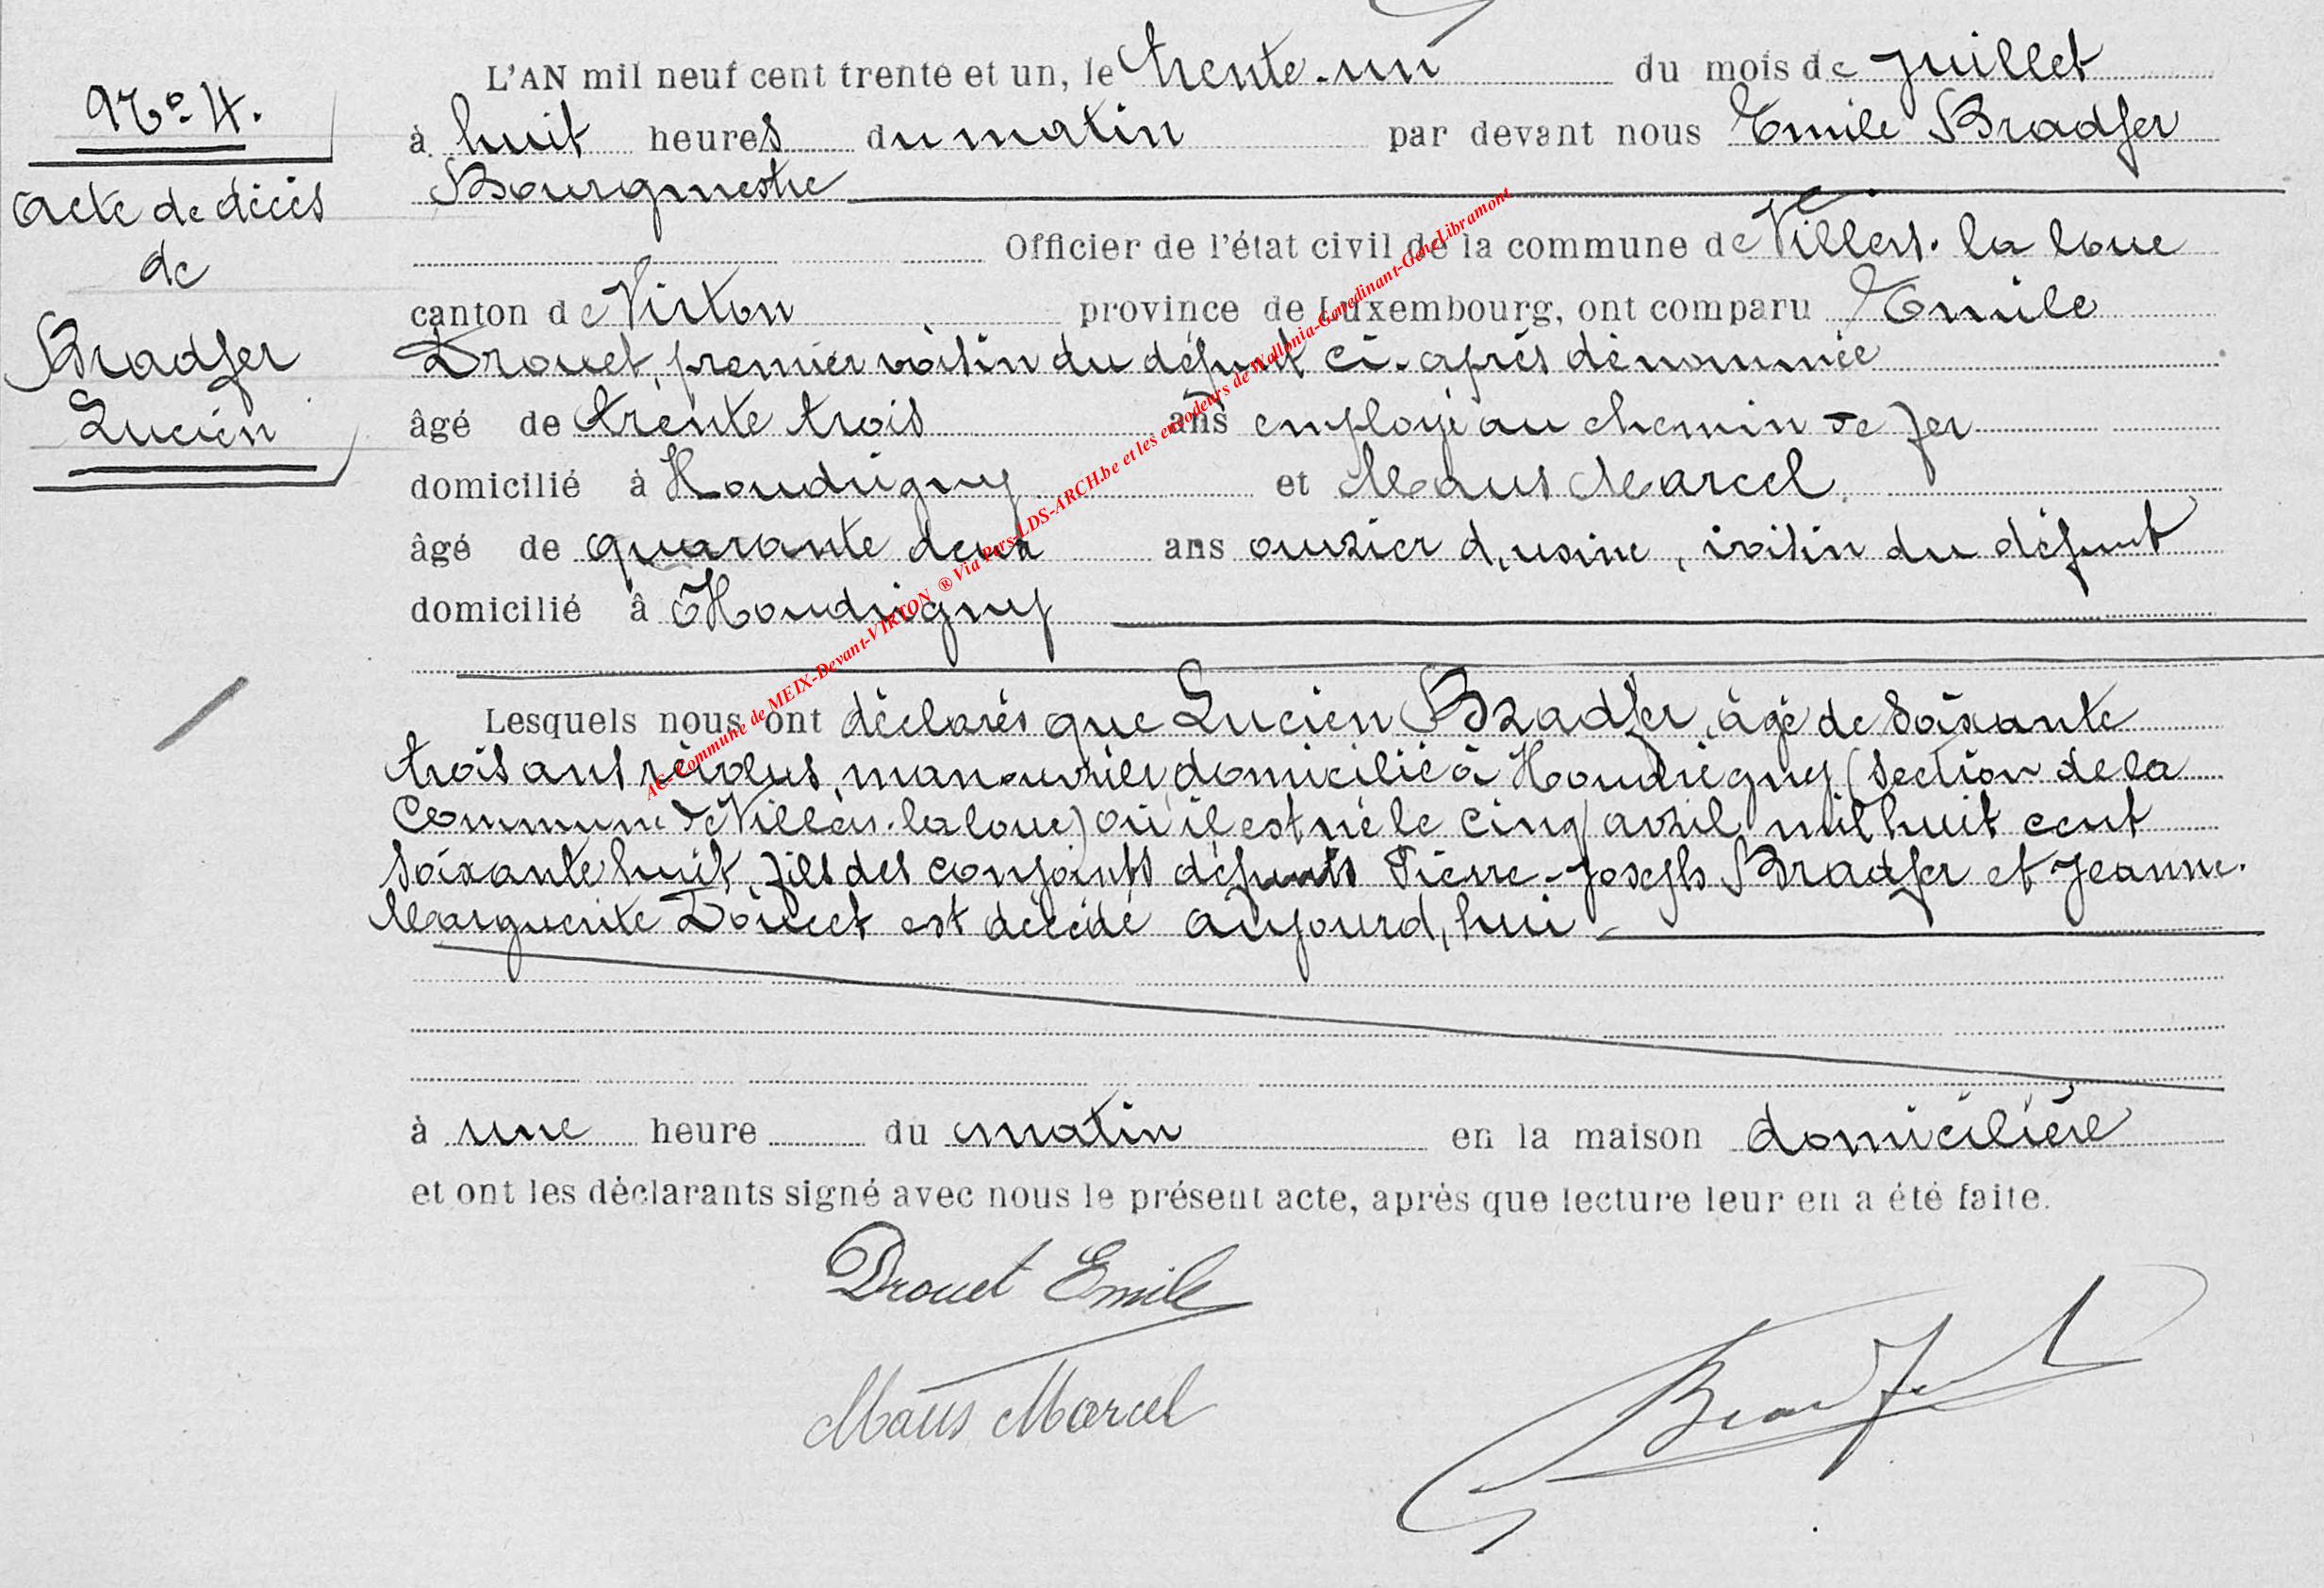 N° 4.
Acte de décès
de
Bradfer
Lucien
L'AN mil neuf cent trente et un, le trente-un du mois de Juillet
à huit heures du matin par devant nous Emile Bradfer
Bourgmestre
Officier de l'état civil de la commune de Villers-la loue
canton de Virton province de Luxembourg, ont comparu Emile
Drouet, premier voisin du défunt ci-après dénommée
âgé de trente trois ans employé au chemin de fer
domicilié à Houdrigny et Maus Marcel.
âgé de quarante deux ans ouvrier d'usine, voisin du défunt
domicilié à Houdrigny
Lesquels nous ont déclarés que Lucien Bradfer, âgé de soixante
trois ans révolus, manouvrier, domicilié à Houdrigny (section de la
Commune de Villers-la loue) où il est né le cinq avril mil huit cent
soixante huit, fils des conjoints défunts Pierre-Joseph Bradfer et Jeanne-
Marguerite Doucet est décédé aujourd'hui
à une heure du matin en la maison domicilière
et ont les déclarants signé avec nous le présent acte, après que lecture leur en a été faite.
Drouet Emile
Maus Marcel
Bradfer
AG-Commune de MEIX-Devant-VIRTON ® Via Pers-LDS-ARCH.be et les encodeurs de Wallonia-Genedinant-GeneLibramont